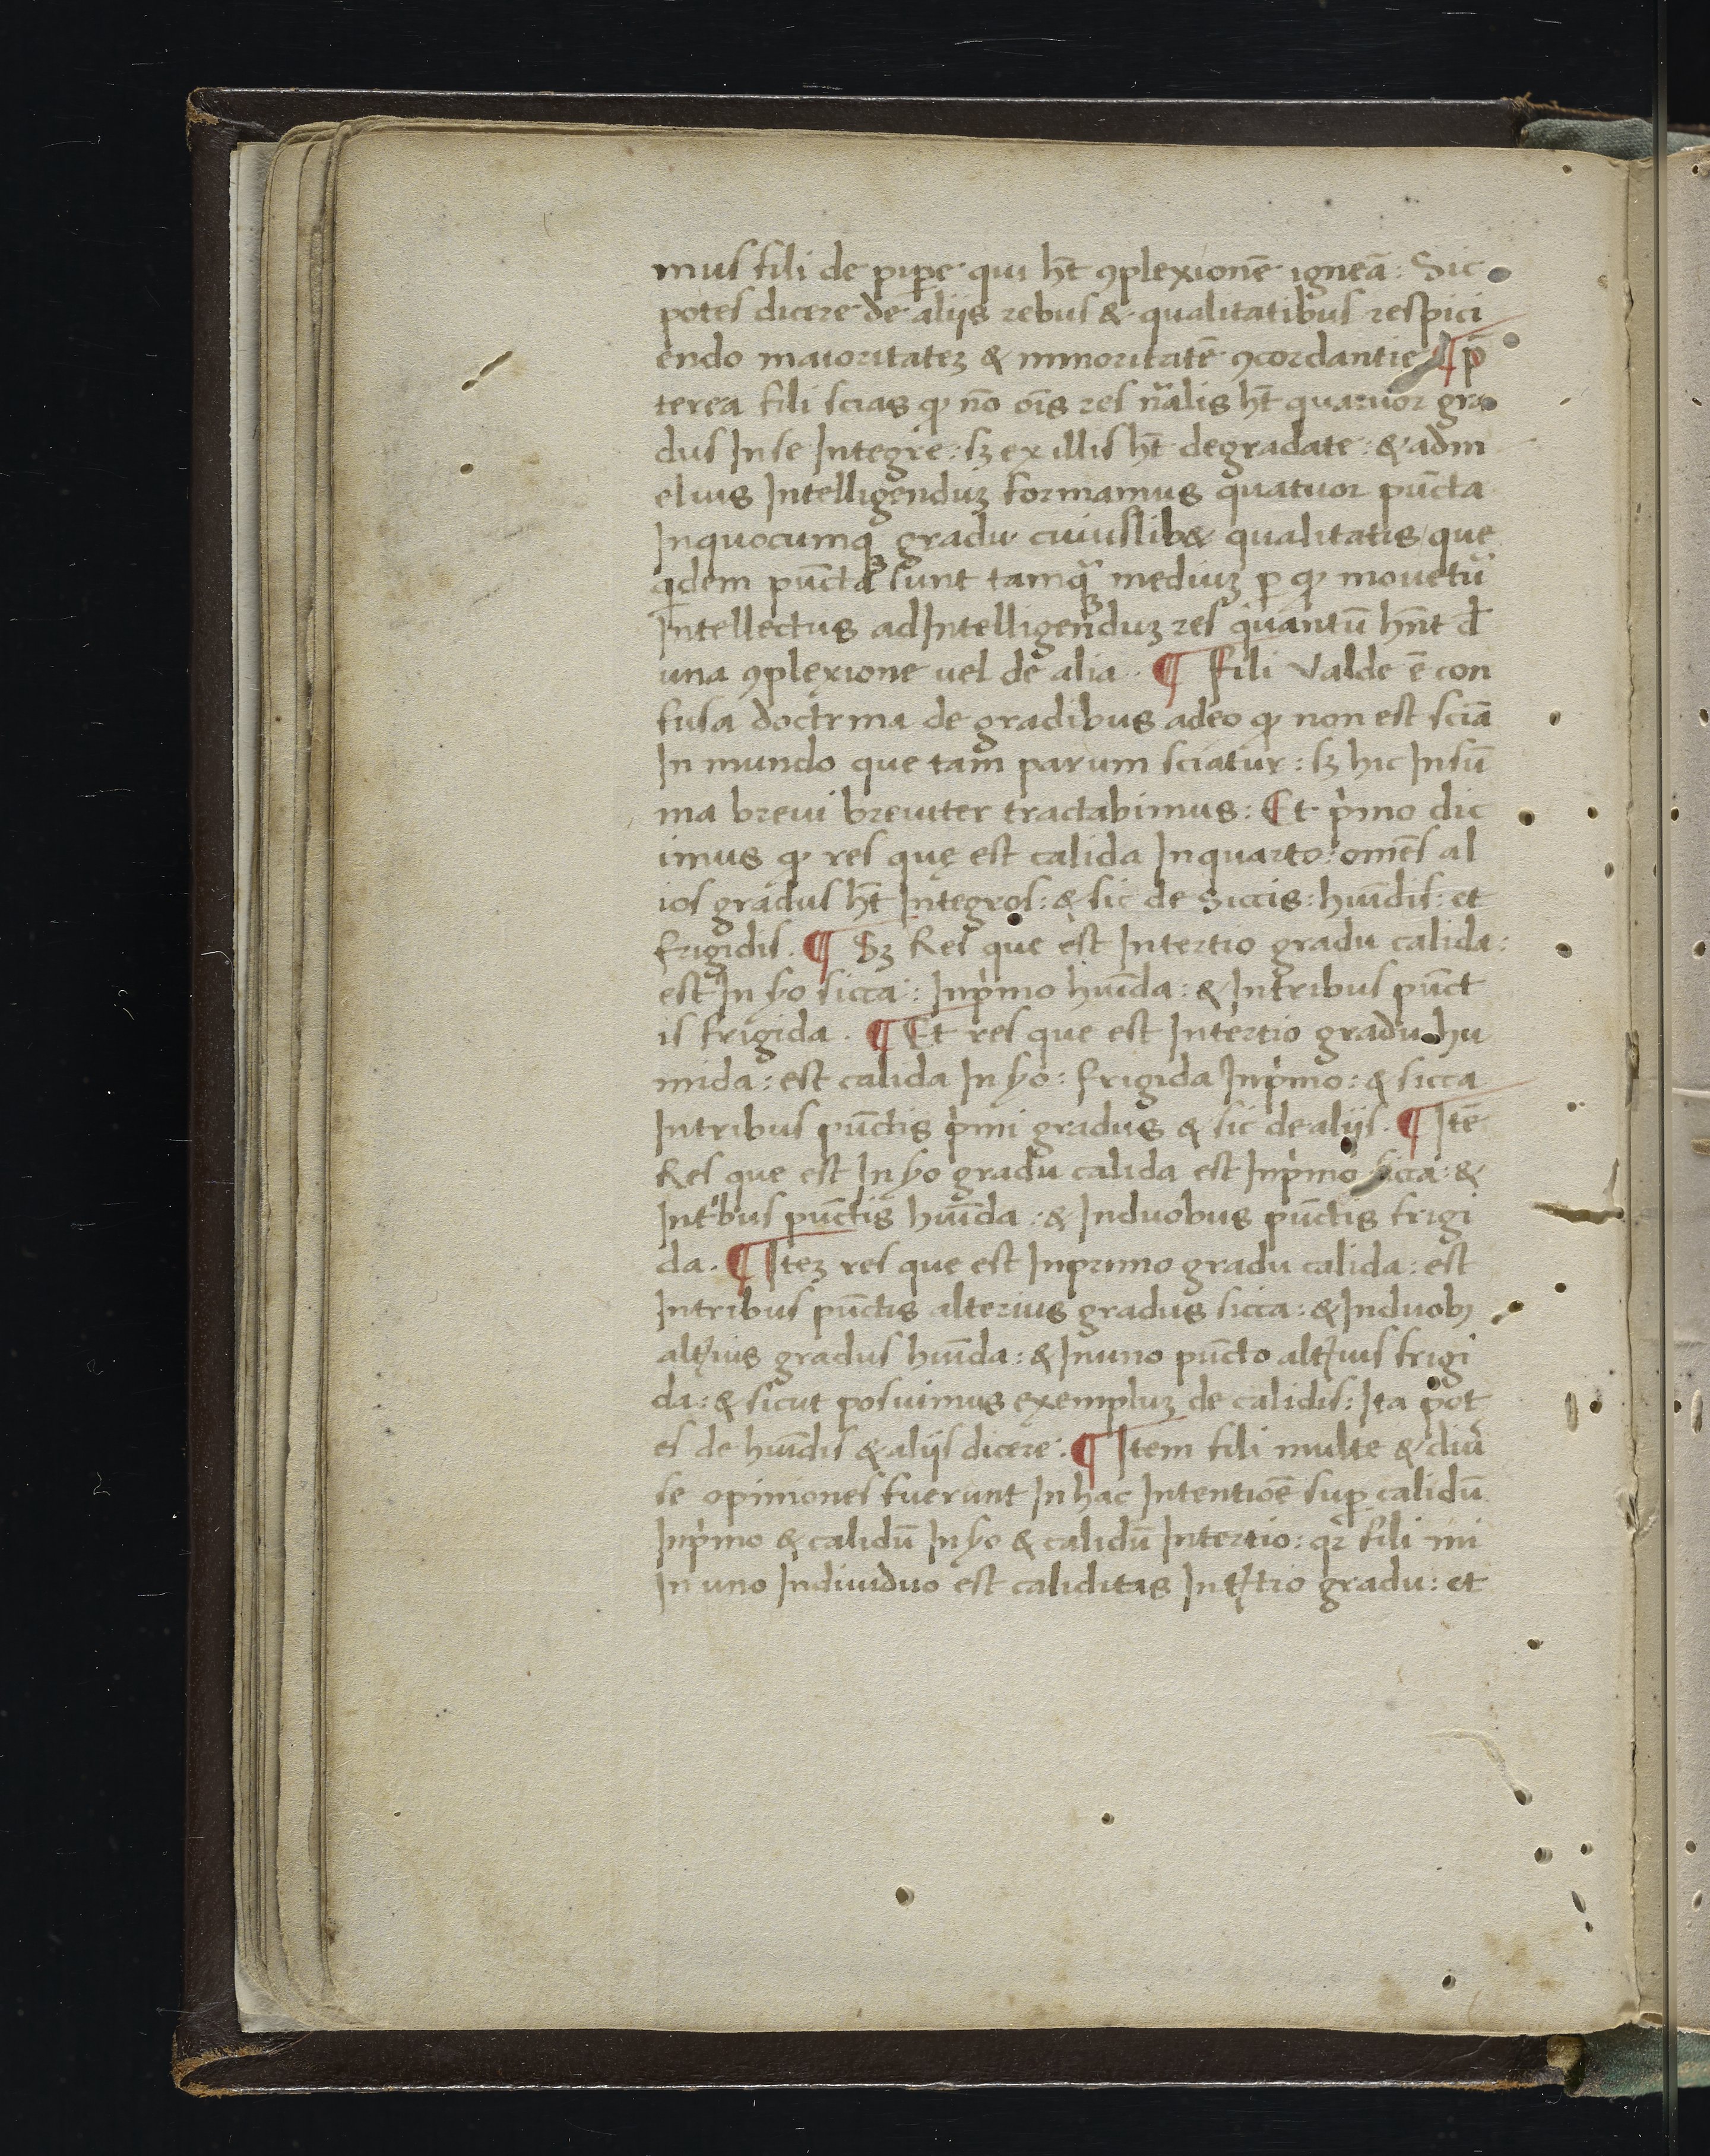 mus fili de pipere qui ht̄ ꝯplexionē igneā: Sic
potes dicere de aliis rebus & qualitatibus respici
endo maioritatez & minoritatē ꝯcordantie ¶ p̄
terea fili scias ꝙ nō oīs res nālis ht̄ quatuor gra
dus In se Integre: sꝫ ex illis ht̄ degradate: & adm
elius Intelligenduꝫ formamus quatuor pūcta
Inquocumqꝫ gradu cuiuslib& qualitatis que
qdem pūcta sunt tamqꝫ mediuꝫ ꝑ ꝙ mouetur
Intellectus adIntelligenduꝫ res quantū hn̄t d̄
una ꝯplexione uel de alia. ¶ Fili valde ē con
fusa doctrina de gradibus adeo ꝙ non est sciā
In mundo que tam parum sciatur: sꝫ hic Insū
ma breui breuiter tractabimus: Et pͥmo dic
imus ꝙ res que est calida Inquarto: omēs al
ios gradus ht̄ Integros: & sic de siccis: hūidis: et
frigidis. ¶ Sꝫ Res que est Intertio gradu calida:
est In ẜo sicca: Inpͥmo hūida: & Intribus pūct
is frigida. ¶ Et res que est Intertio gradu hu
mida: est calida In ẜo: frigida Inpͥmo: & sicca
Intribus pūctis pͥmi gradus & sic de aliis. ¶ Itē
Res que est In ẜo gradu calida est Inpͥmo sicca: &
Intͥbus pūctis hūida: & Induobus pūctis frigi
da. ¶ Iteꝫ res que est Inprimo gradu calida: est
Intribus pūctis alterius gradus sicca: & Induobꝫ
alt̄ius gradus hūida: & Inuno pūcto alt̄ius frigi
da: & sicut posuimus exempluꝫ de calidis: Ita pot
es de hūidis & aliis dicere. ¶ Item fili multe & diu̓
se opiniones fuerunt In hac Intentiōē suꝑ calidū
Inpͥmo & calidū In ẜo & calidū Intertio: qꝛ fili mi
In uno Indiuiduo est caliditas Int̄tio gradu: et